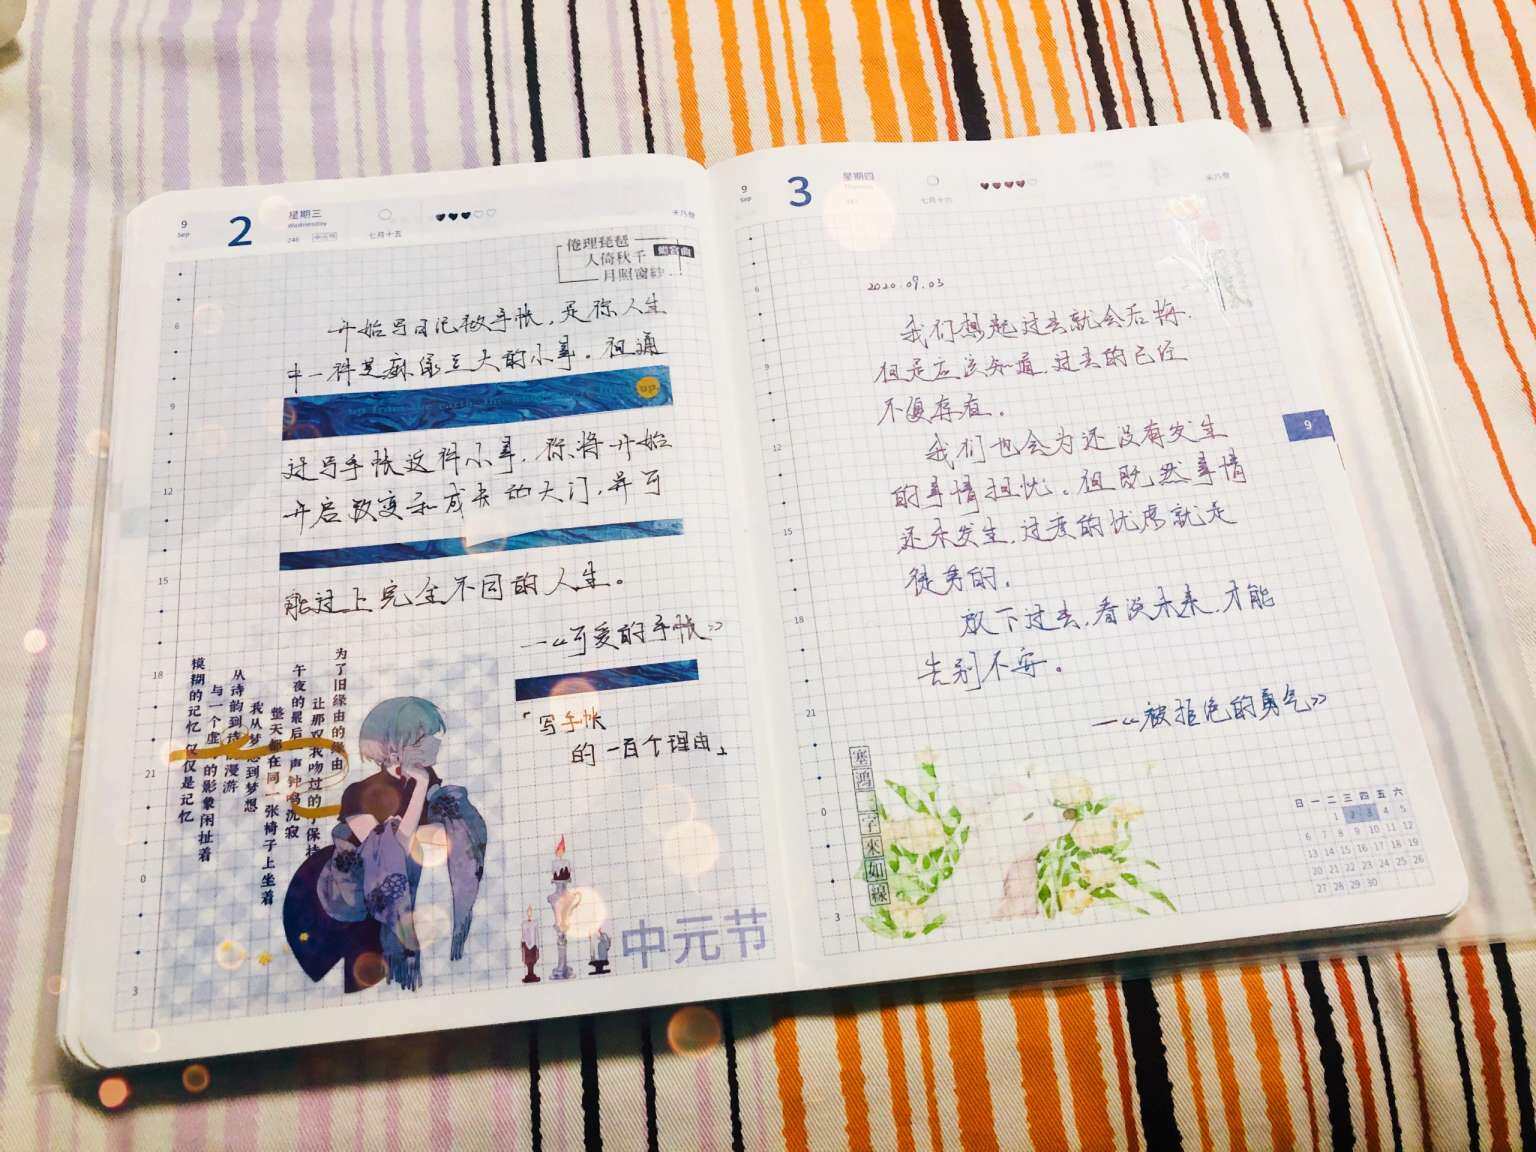 9
Sep
2
星期三
Wednesday
246
七月十五
禾乃登
倦理琵琶
人倚秋千
月照窗紗
开始写日记做手帐，是你人生
中一件芝麻绿豆大的小事。但通
up.
过写手帐这件小事，你将开始
开启改变和成长的大门，并可
能过上完全不同的人生。
—《可爱的手帐》
「写手帐
的一百个理由」
为了旧缘由的缘由
让那双我吻过的手保持
午夜的最后一声钟鸣沉寂
整天都在同一张椅子上坐着
我从梦想到梦想
从诗韵到诗 漫游
与一个虚 的影象闲扯着
模糊的记忆 仅仅是记忆
中元节
6
9
12
15
18
21
0
3
9
Sep
3
星期四
Thursday
247
七月十六
禾乃登
2020.09.03
我们想起过去就会后悔.
但是应该知道，过去的已经
不复存在。
我们也会为还没有发生
的事情担忧。但既然事情
还未发生，过度的忧虑就是
徒劳的.
放下过去，看淡未来，才能
告别不安。
—《被拒绝的勇气》
塞鴻二字來如線
6
9
12
15
18
21
0
3
9
日 一 二 三 四 五 六
1 2 3 4 5
6 7 8 9 10 11 12
13 14 15 16 17 18 19
20 21 22 23 24 25 26
27 28 29 30